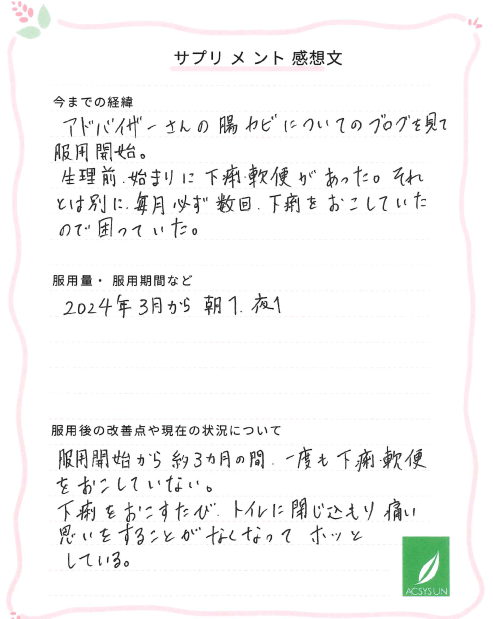 サプリメント感想文
今までの経緯
アドバイザーさんの腸カビについてのブログを見て
服用開始。
生理前、始まりに下痢・軟便があった。それ
とは別に、毎月必ず数回、下痢をおこしていた
ので困っていた。
服用量・服用期間など
2024年3月から 朝1、夜1
服用後の改善点や現在の状況について
服用開始から約3カ月の間、一度も下痢・軟便
をおこしていない。
下痢をおこすたび、トイレに閉じ込もり痛い
思いをすることがなくなって ホッと
している。
ACSYSUN